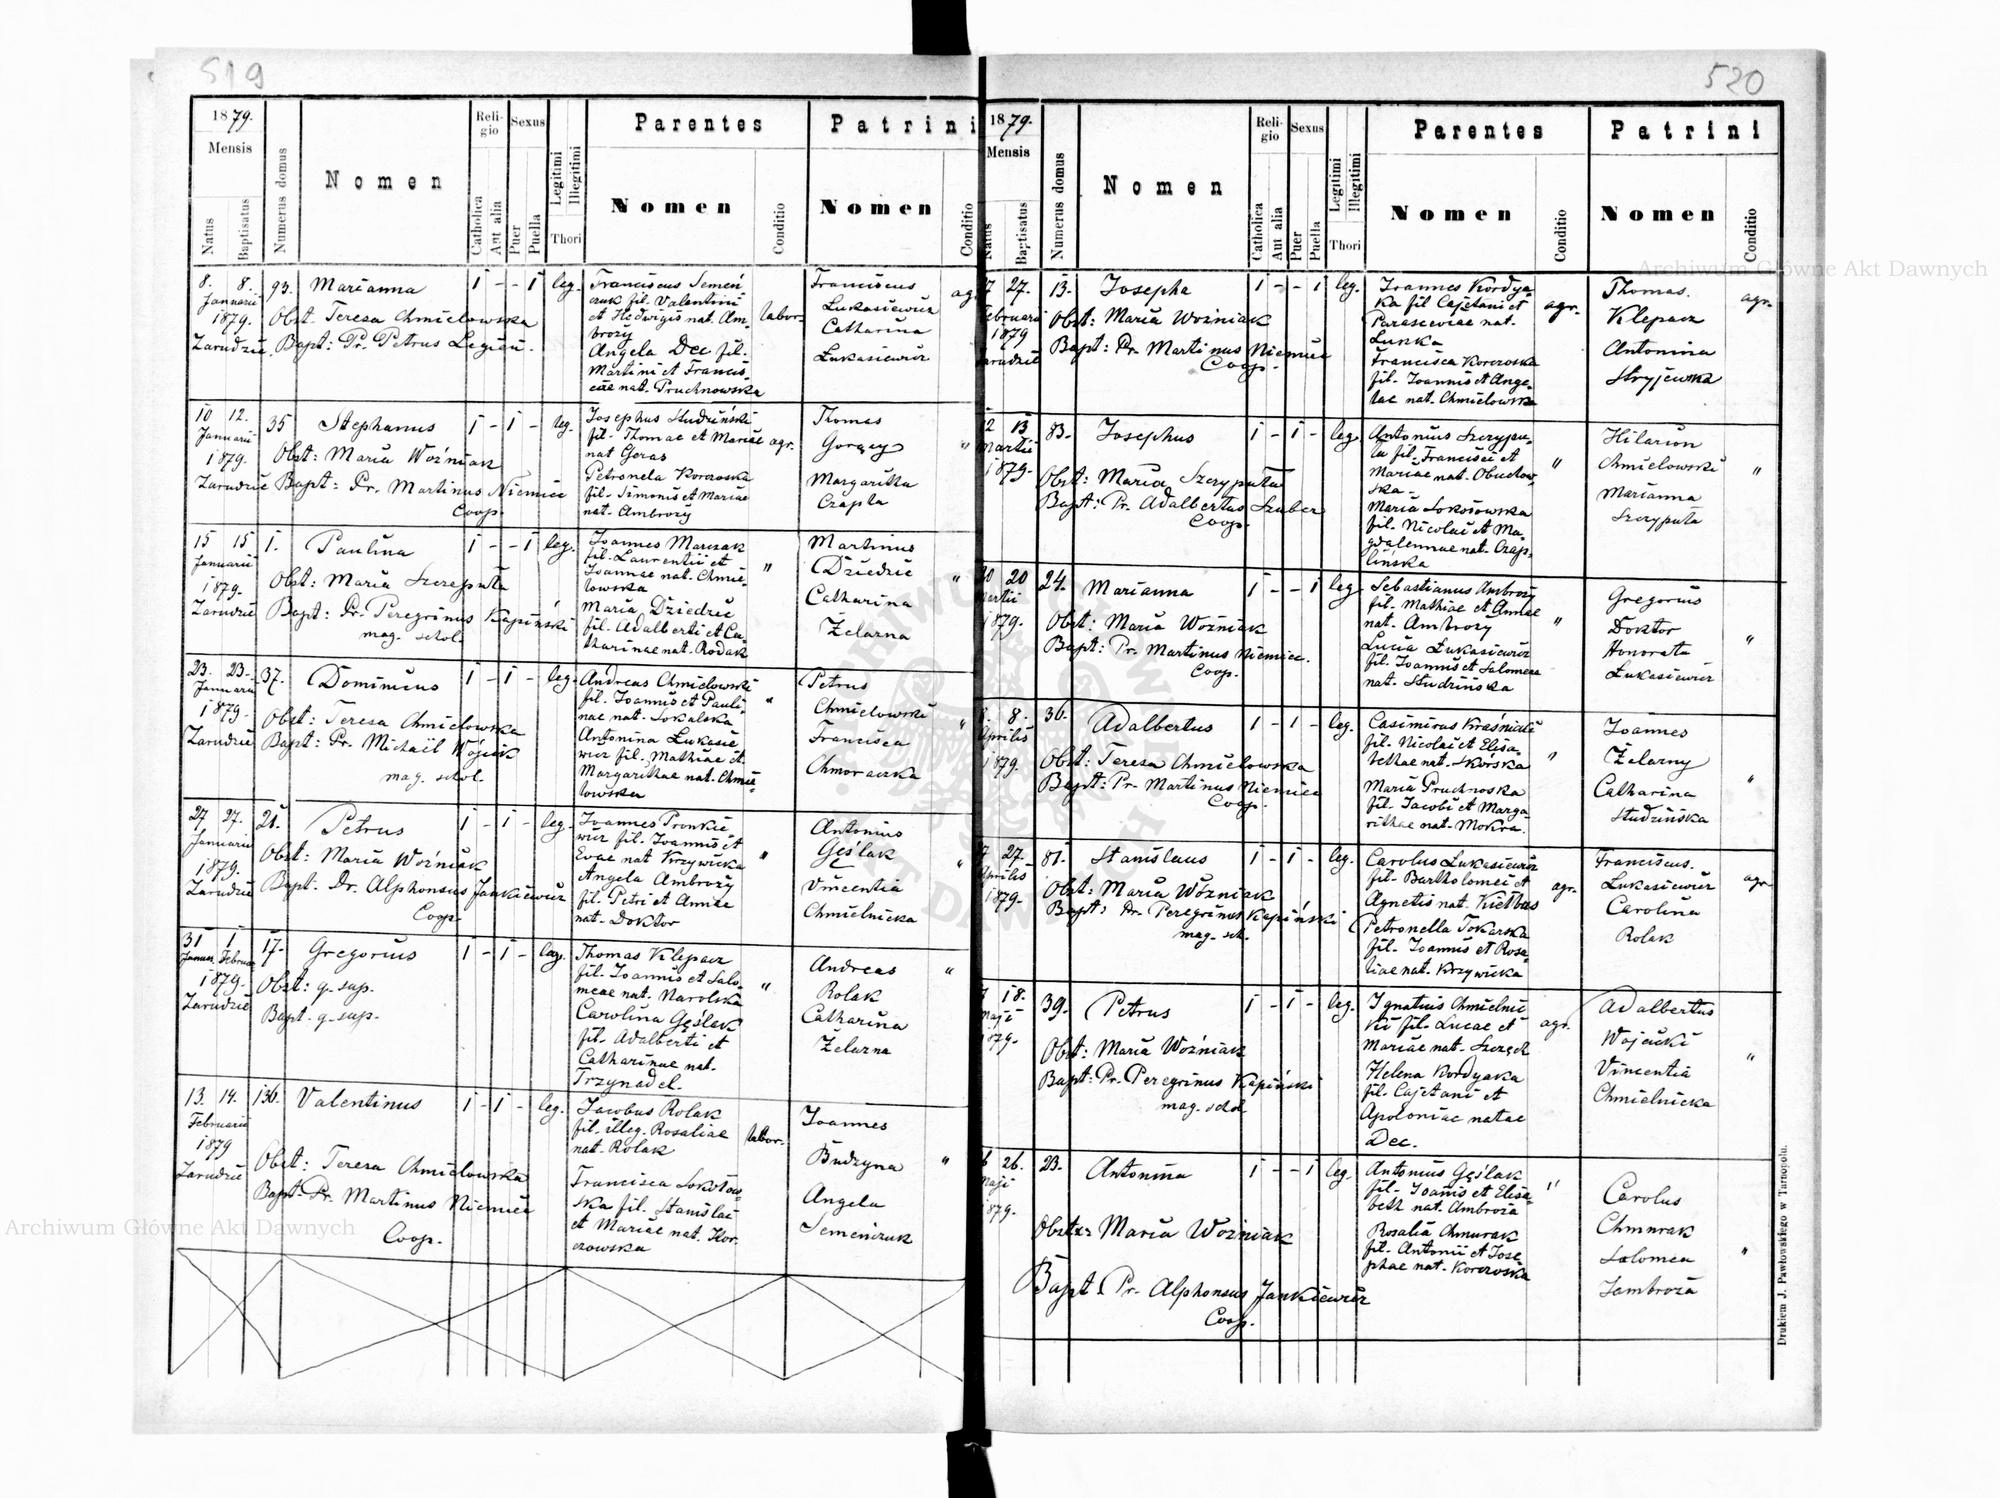 519
1879.
Mensis
Natus
Baptisatus
Numerus domus
Nomen
Religio
Catholica
Aut alia
Sexus
Puer
Puella
Legitimi
Illegitimi
Thori
Parentes
Nomen
Conditio
Patrini
Nomen
Conditio
8. 8. 93. Marianna 1 - - 1 leg.
Januarii
1879.
Zarudzie.
Obst. Teresa Chmielowska
Bapt: Pr. Petrus Legień.
Franciscus Semeń
czuk fil. Valentini
et Hedwigis nat. Am-
broży
Angela Dec fil.
Martini et Francis-
cae nat. Pruchnowska
labor.
Franciscus
Łukasiewicz
Catharina
Łukasiewicz
agr.
10 12. 35 Stephanus 1 - 1 - leg.
Januarii
1879.
Zarudzie
Obst: Maria Woźniak
Bapt: Pr. Martinus Niemiec
Coop.
Josephus Studziński
fil. Thomae et Mariae
nat Geras
Petronela Korczoska
fil. Simonis et Mariae
nat. Ambroży
agr.
Thomas
Gorący
Margaritta
Czapla
"
15 15 1. Paulina 1 - - 1 leg.
Januarii
1879.
Zarudzie
Obst: Maria Szczeputa
Bapt: Pr. Peregrinus Kapiński
mag. schol.
Joannes Marczak
fil. Laurentii et
Joannae nat. Chmie-
lowska
Maria Dziedzic
fil. Adalberti et Ca-
tharinae nat. Rodak
"
Martinus
Dziedzic
Catharina
Żelazna
"
23. 23. 37. Dominicus 1 - 1 - leg.
Januarii
1879.
Zarudzie
Obst: Teresa Chmielowska
Bapt: Pr. Michaił Wójcik
mag. schol.
Andreas Chmielowski
fil. Joannis et Pauli-
nae nat. Sokalska
Antonina Łukasie
wicz fil. Mathiae et
Margarithae nat. Chmie-
lowska
"
Petrus
Chmielowski
Francisca
Chmoraczka
"
27 27. 21. Petrus 1 - 1 - leg.
Januarii
1879.
Zarudzie
Obst: Maria Woźniak
Bapt. Dr. Alphonsus Jankiewicz
Coop
Joannes Pronkie-
wicz fil. Joannis et
Evae nat Krzywicka
Angela Ambroży
fil. Petri et Annae
nat. Doktor
"
Antonius
Gęślak
Vincentia
Chmielnicka
"
31 1 17. Gregorius 1 - 1 - leg.
Januar. Februar
1879.
Zarudzie
Obst: q. sup.
Bapt. q. sup.
Thomas Klepacz
fil. Joannis et Salo-
meae nat. Narolska
Carolina Gęślak
fil. Adalberti et
Catharinae nat.
Trzynadel.
"
Andreas
Rolak
Catharina
Żelazna
"
13. 14. 136. Valentinus 1 - 1 - leg.
Februarii
1879
Zarudzie
Obst: Teresa Chmielowska
Bapt. Pr. Martinus Niemiec
Coop.
Jacobus Rolak
fil. illeg. Rosaliae
nat. Rolak
Francisca Sokołow-
ska fil. Stanislai
et Mariae nat. Kor-
czowska
labor.
Joannes
Budzyna
Angela
Semeniuk
"
520
1879.
Mensis
Natus
Baptisatus
Numerus domus
Nomen
Religio
Catholica
Aut alia
Sexus
Puer
Puella
Legitimi
Illegitimi
Thori
Parentes
Nomen
Conditio
Patrini
Nomen
Conditio
27. 13. Josepha 1 - - 1 leg.
Februarii
1879
Zarudzie
Obst: Maria Woźniak
Bapt: Pr. Martinus Niemiec
Coop.
Joannes Kordya-
ka fil Cajetani et
Parasceviae nat.
Łunka
Francisca Korczoska
fil. Joannis et Ange-
lae nat. Chmielowska
agr.
Thomas.
Klepacz
Antonina
Stryjewska
agr.
12 13 83. Josephus 1 - 1 - leg.
Martii
1879.
Obst: Maria Szczyputa
Bapt: Pr. Adalbertus Szuber
Coop.
Antonius Szczypu-
ta fil. Francisci et
Mariae nat. Obuchow-
ska.
Maria Sokołowska
fil. Nicolai et Ma-
gdalennae nat. Czap-
lińska
"
Hilarion
Chmielowski
Marianna
Szczyputa
"
20 20 24. Marianna 1 - - 1 leg.
Martii
1879.
Obst: Maria Woźniak
Bapt: Pr. Martinus Niemiec.
Coop.
Sebastianus Ambroży
fil. Mathiae et Annae
nat. Ambroży
Lucia Łukasiewicz
fil. Joannis et Salomeae
nat. Studzińska
"
Gregorius
Doktor
Honorata
Łukasiewicz
"
8. 8. 36. Adalbertus 1 - 1 - leg.
Aprilis
1879.
Obst: Teresa Chmielowska
Bapt: Pr. Martinus Niemiec
Coop.
Casimirus Kraśnicki
fil. Nicolai et Elisa-
bethae nat. Skórska
Maria Pruchnoska
fil. Jacobi et Marga
rithae nat. Mokra.
"
Joannes
Żelazny
Catharina
Studzińska
"
27. 81. Stanislaus 1 - 1 - leg.
Aprilis
1879.
Obst: Maria Woźniak
Bapt: Pr. Peregrinus Kapiński
mag. sch.
Carolus Łukasiewicz
fil. Bartholomei et
Agnetis nat. Kiełbas
Petronella Tokarska
fil. Joannis et Rosa-
liae nat. Krzywicka
agr.
Franciscus.
Łukasiewicz
Carolina
Rolak
agr.
18. 39. Petrus 1 - 1 - leg.
Maji
1879.
Obst: Maria Woźniak
Bapt: Pr. Peregrinus Kapiński
mag. schol
Ignatius Chmielnic
ki fil. Lucae et
Mariae nat.
Helena Kordyaka
fil. Cajetani et
Apoloniae natae
Dec.
agr.
Adalbertus
Wojcicki
Vincentia
Chmielnicka
"
26. 23. Antonina 1 - - 1 leg.
Maji
1879.
Obstz: Maria Woźniak
Bapt: Pr. Alphonsus Jankiewicz
Coop.
Antonius Gęślak
fil. Joanis et Elisa-
beth nat. Ambroża
Rosalia Chmurak
fil. Antonii et Jose-
phae nat. Korczoska
"
Carolus
Chmurak
Salomea
Jambroża
"
Drukiem J. Pawłowskiego w Tarnopolu.
Archiwum Główne Akt Dawnych
Archiwum Główne Akt Dawnych